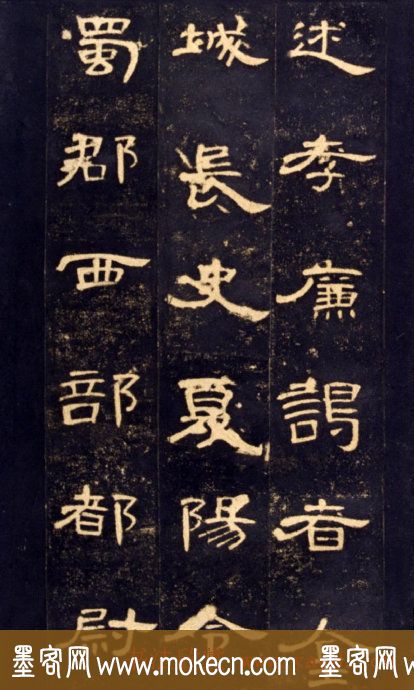 述孝廉謁者金
城長史夏陽令
蜀郡西部都尉
墨客网 www.mokecn.com 墨客网